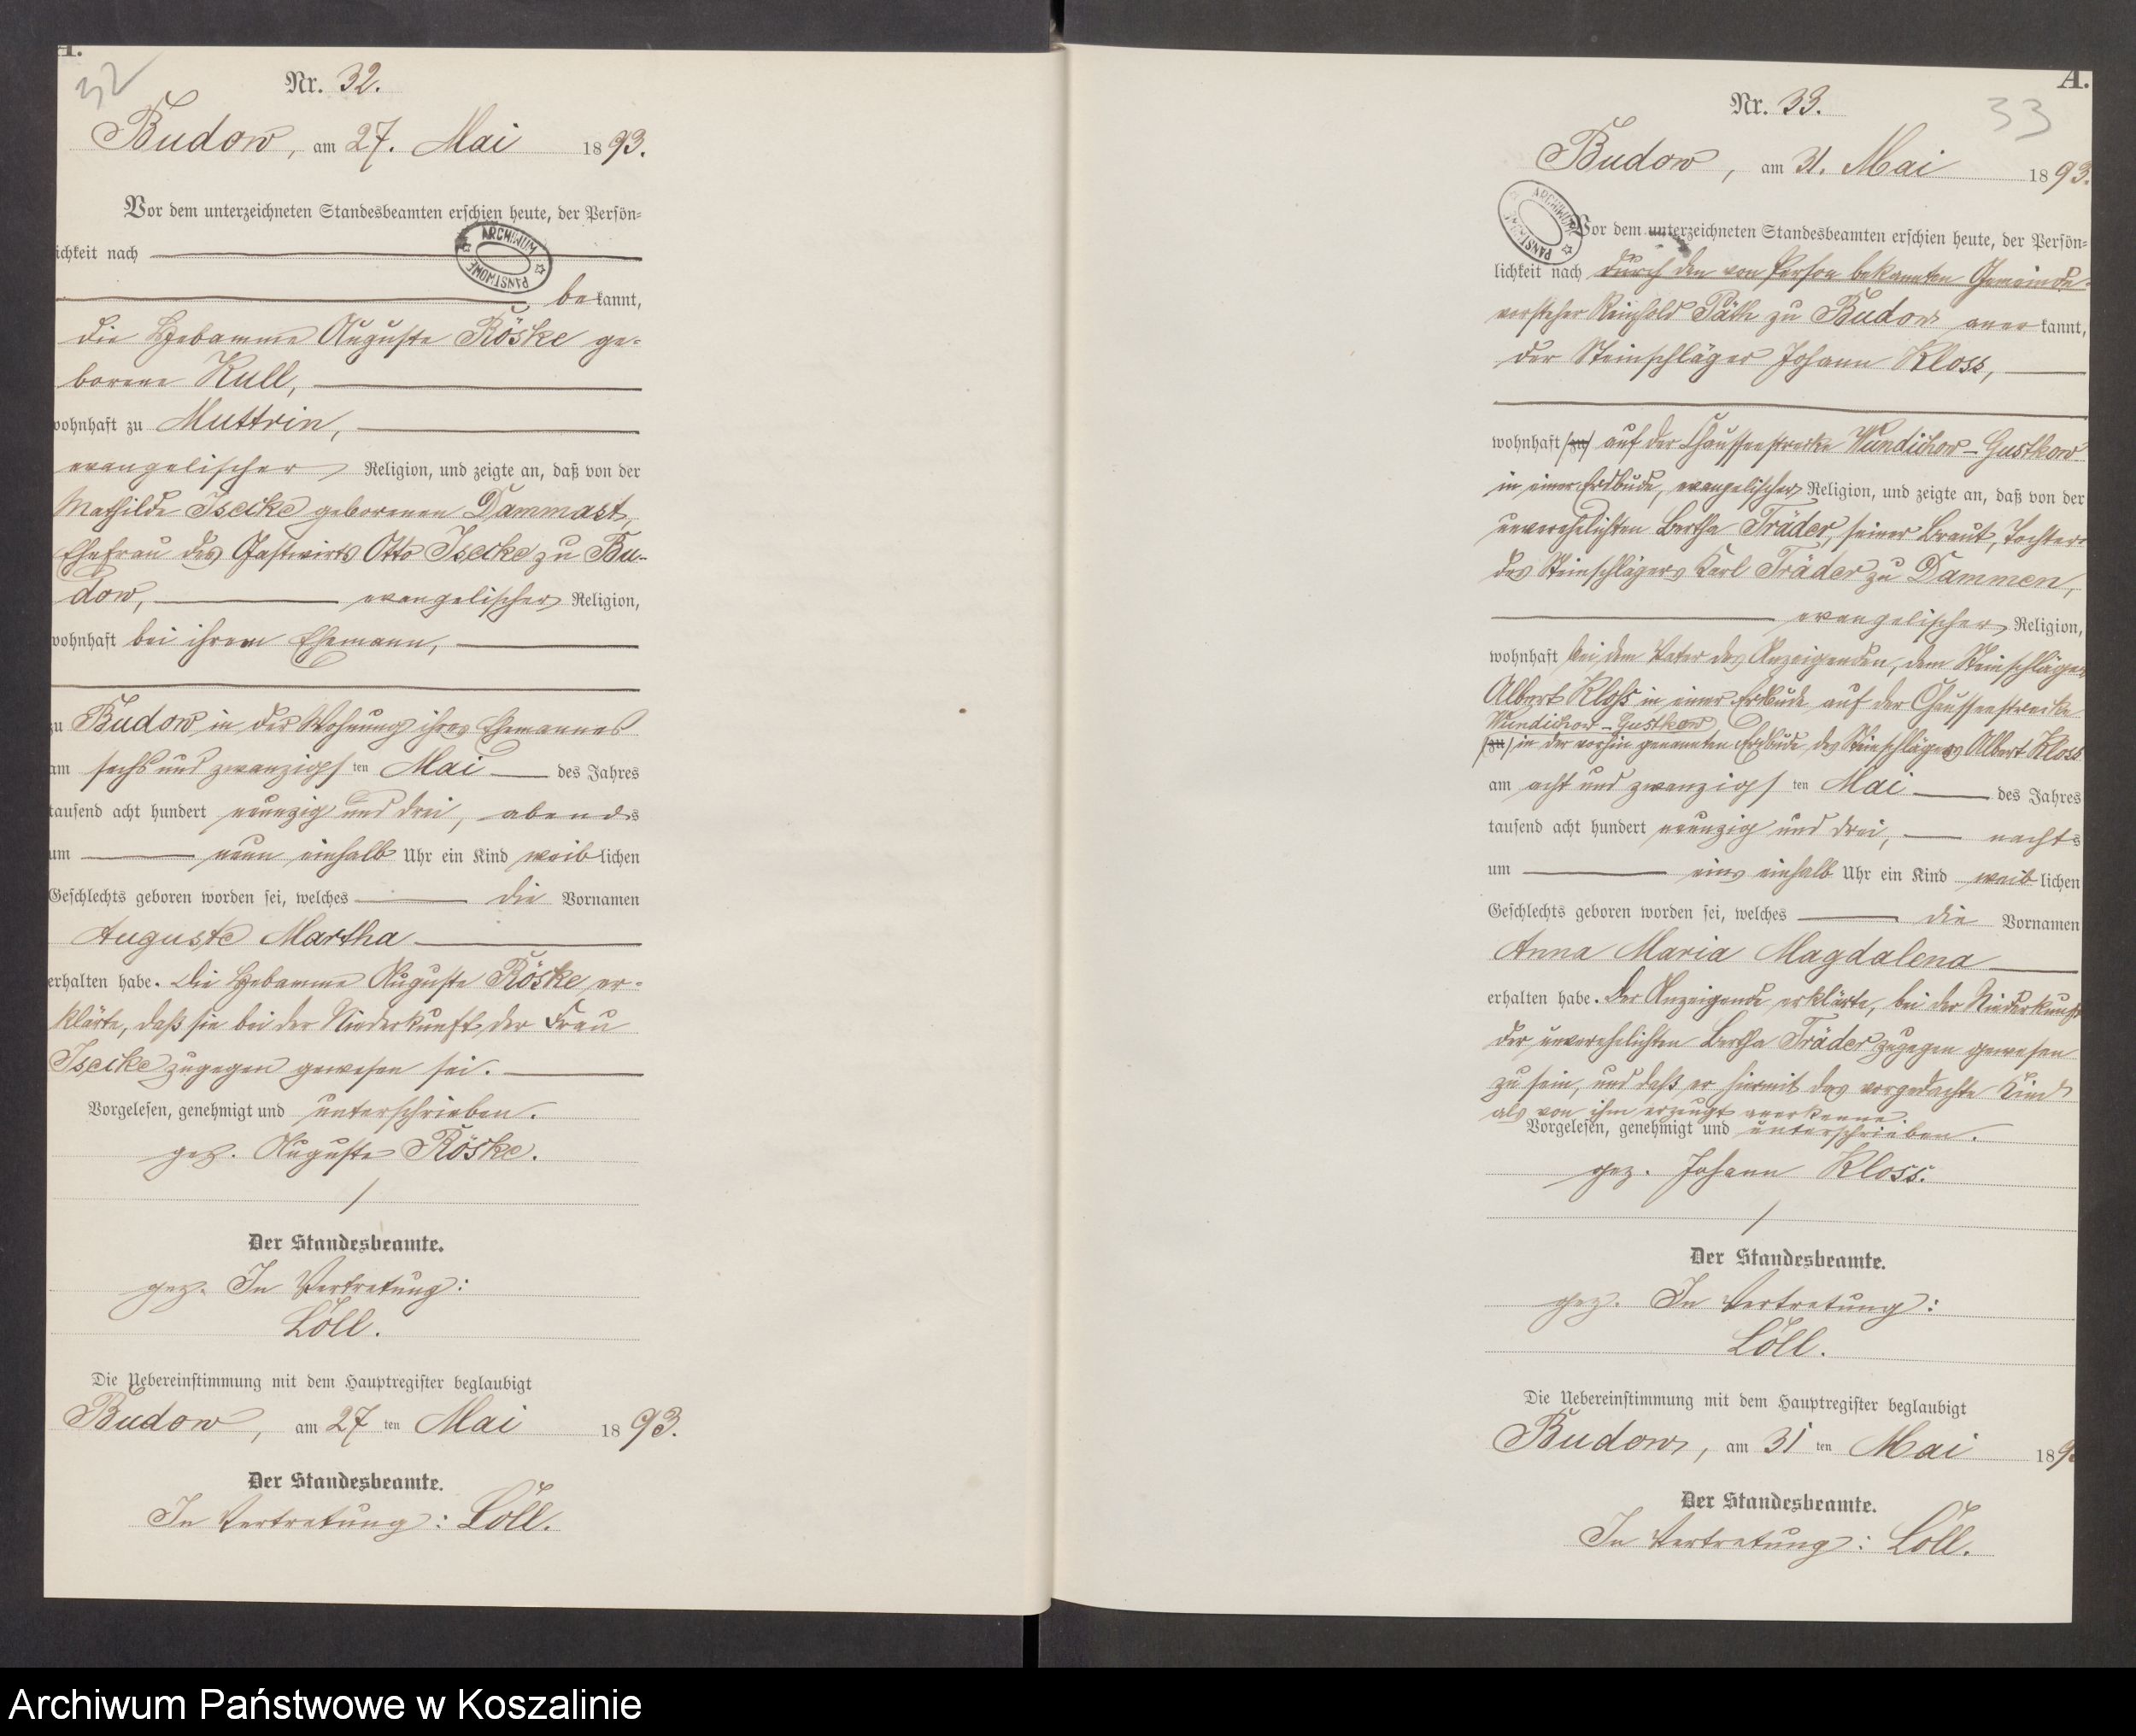 A.
32
Nr. 32.
Budow, am 27. Mai 1893.
Vor dem unterzeichneten Standesbeamten erschien heute, der Persön=
ARCHIWUM PAŃSTWOWE
lichkeit nach
bekannt,
die Hebamme Auguste Röske ge=
borene Kull,
wohnhaft zu Muttrin,
evangelischer Religion, und zeigte an, daß von der
Mathilde Isecke geborenen Dammast,
Ehefrau des Gastwirts Otto Isecke zu Bu=
dow, evangelischer Religion,
wohnhaft bei ihrem Ehemann,
zu Budow in der Wohnung ihres Ehemannes
am sechs und zwanzigsten Mai des Jahres
tausend acht hundert neunzig und drei, abends
um neun einhalb Uhr ein Kind weiblichen
Geschlechts geboren worden sei, welches die Vornamen
Auguste Martha
erhalten habe. Die Hebamme Auguste Röske er=
klärte, daß sie bei der Niederkunft der Frau
Isecke zugegen gewesen sei.
Vorgelesen, genehmigt und unterschrieben.
gez. Auguste Röske.
Der Standesbeamte.
gez. In Vertretung:
Löll.
Die Uebereinstimmung mit dem Hauptregister beglaubigt
Budow, am 27 ten Mai 1893.
Der Standesbeamte.
In Vertretung: Löll.
A.
33
Nr. 33.
Budow, am 31. Mai 1893.
ARCHIWUM PAŃSTWOWE
Vor dem unterzeichneten Standesbeamten erschien heute, der Persön=
lichkeit nach durch den von Person bekannten Gemeinde=
vorsteher Reinhold Päth zu Budow anerkannt,
der Steinschläger Johann Kloss,
wohnhaft (zu) auf der Chausseestrecke Wundichow-Gustkow
in einer Erdbude, evangelischer Religion, und zeigte an, daß von der
unverehelichten Bertha Träder, seiner Braut, Tochter
des Steinschlägers Karl Träder zu Dammen,
evangelischer Religion,
wohnhaft bei dem Vater des Anzeigenden, dem Steinschläger
Albert Kloss in einer Erdbude auf der Chausseestrecke
Wundichow-Gustkow
(zu) in der vorhin genannten Erdbude des Steinschlägers Albert Kloss
am acht und zwanzigsten Mai des Jahres
tausend acht hundert neunzig und drei, nachts
um eins einhalb Uhr ein Kind weiblichen
Geschlechts geboren worden sei, welches die Vornamen
Anna Maria Magdalena
erhalten habe. Der Anzeigende erklärte, bei der Niederkunft
der unverehelichten Bertha Träder zugegen gewesen
zu sein, und daß er hiermit das vorgedachte Kind
als von ihm erzeugt anerkenne.
Vorgelesen, genehmigt und unterschrieben.
gez. Johann Kloss.
Der Standesbeamte.
gez. In Vertretung:
Löll.
Die Uebereinstimmung mit dem Hauptregister beglaubigt
Budow, am 31 ten Mai 189
Der Standesbeamte.
In Vertretung: Löll.
Archiwum Państwowe w Koszalinie